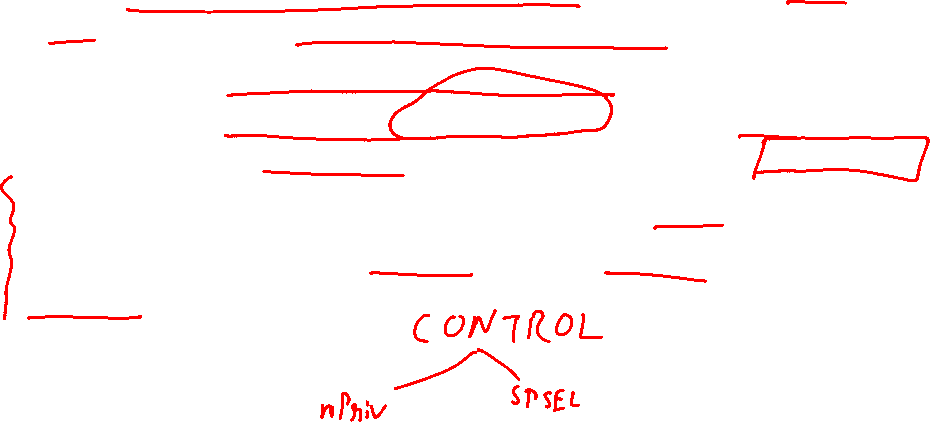 CONTROL
nPriv SPSEL